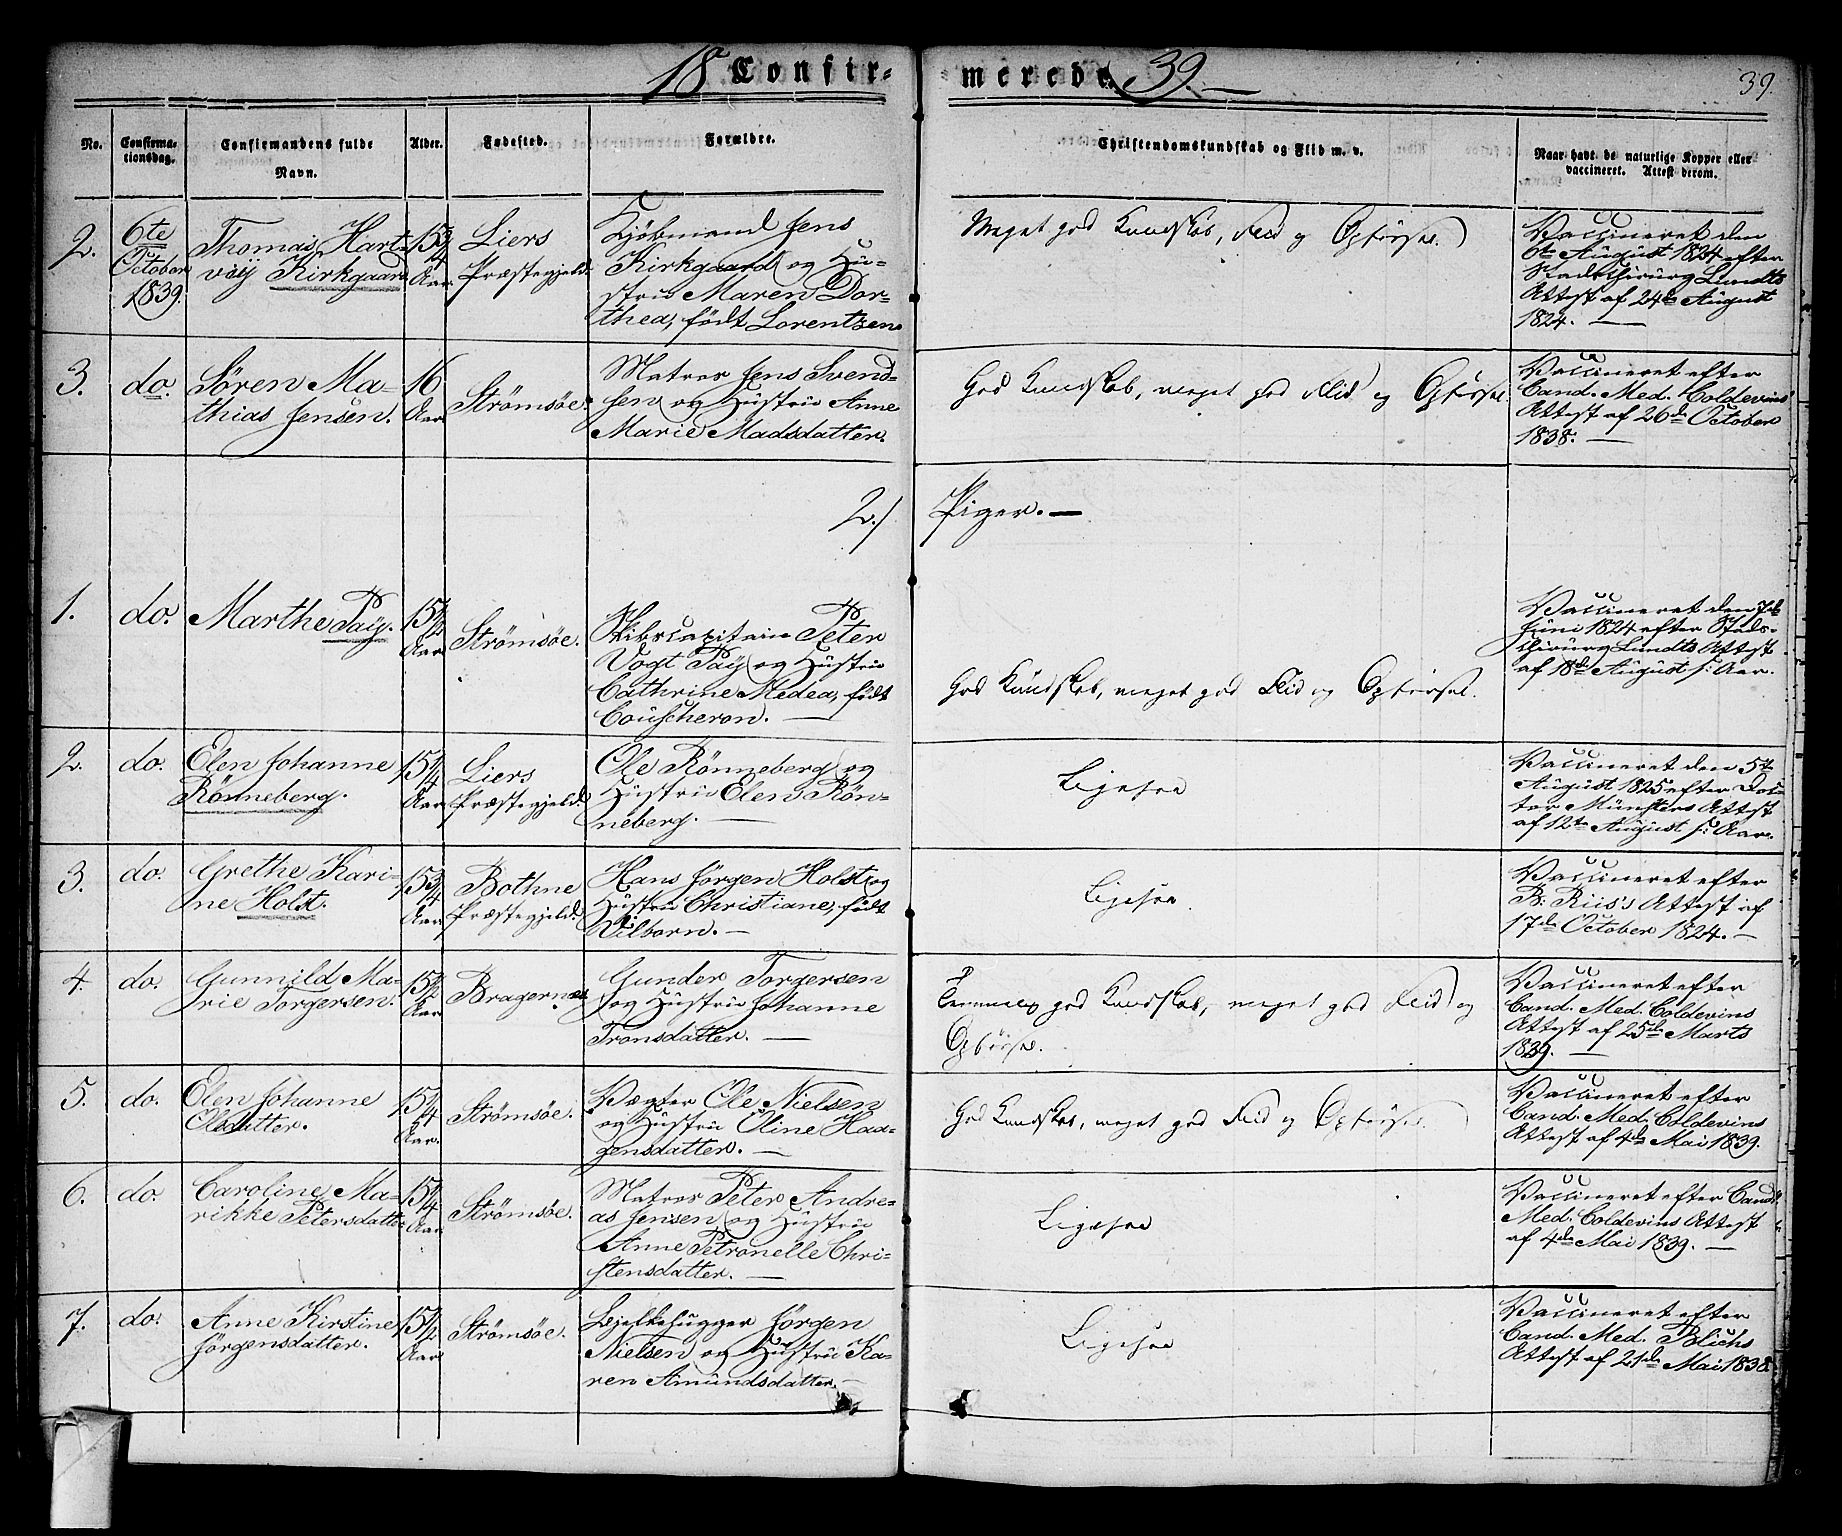 18 Confir-
merede 39.
39.
No.
Confirma-
tionsdag.
Confirmandens fulde
Navn.
Alder.
Fødested.
Forældre.
Christendomskundskab og Flid m. v.
Naar havt de naturlige Kopper eller
vaccineret. Attest derom.
2.
6te
October
1839.
Thomas Hart-
vig Kirkgaard
15 3/4
Aar
Liers
Præstegjeld.
Kjöbmand Jens
Kirkgaard og Hu-
strü Maren Dor-
thea, födt Lorentsen
Meget god Kundskab, Flid og Opførsel.
Vaccineret den
6te August 1824 efter
Stadschirurg Lundts
Attest af 24de August
1824. —
3.
do.
Sören Ma-
thias Jensen.
16
Aar
Strömsöe.
Matros Jens Svend-
sen og Hüstrü Anne
Marie Madsdatter.
God Kundskab, meget god Flid og Opførsel.
Vaccineret efter
Cand. Med. Coldevins
Attest af 26de October
1838. —
2./ Piger. —
1.
do.
Marthe Paÿ.
15 1/2
Aar
Strömsöe.
Skibscapitain Peter
Vogt Paÿ og Hüstrü
Cathrine Medea, födt
Coucheron. —
God Kundskab, meget god Flid og Opførsel.
Vaccineret den 7de
Juni 1824 efter Stads-
chirurg Lundts Attest
af 18de August s: Aar.
2.
do.
Elen Johanne
Rönneberg.
15 1/4
Aar
Liers
Præstegjeld.
Ole Rönneberg og
Hüstrü Elen Rön-
neberg. —
Ligesaa
Vaccineret den 5te
August 1825 efter Doc-
tor Münsters Attest
af 12te August s: Aar.
3.
do.
Grethe Kari-
ne Holst.
15 3/4
Aar
Bothne
Præstegjeld.
Hans Jörgen Holst og
Hüstrü Christiane, födt
Wilborn. —
Ligesaa.
Vaccineret efter
B. Riis's Attest af
17de October 1824. —
4.
do.
Gunnild Ma-
rie Torgersen.
15 1/2
Aar
Bragernæs.
Gunder Torgersen
og Hüstrü Johanne
Tronsdatter. —
Temmelig god Kundskab, meget god Flid og
Opførsel.
Vaccineret efter
Cand. Med. Coldevins
Attest af 25de Marts
1839. —
5.
do.
Elen Johanne
Olsdatter.
15 1/4
Aar.
Strömsöe.
Vægter Ole Nielsen
og Hüstrü Oline Haa-
gensdatter. —
God Kundskab, meget god Flid og Opførsel.
Vaccineret efter
Cand. Med. Coldevins
Attest af 4de Mai 1839.
6.
do.
Caroline Ma-
rikke Petersdatter
15 1/4
Aar
Strömsöe.
Matros Peter Andre-
as Jensen og Hüstrü
Anne Petronelle Chri-
stensdatter. —
Ligesaa
Vaccineret efter Cand.
Med. Coldevins Attest
af 4de Mai 1839. —
7.
do.
Anne Kirstine
Jörgensdatter.
15 1/2
Aar
Strömsöe.
Bjelkehugger Jörgen
Nielsen og Hüstrü Ka-
ren Amündsdatter. —
Ligesaa
Vaccineret efter
Cand. Med. Blichs
Attest af 21de Mai 1838.